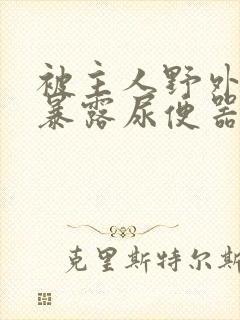 被主人野外
暴露尿便器
克里斯特尔斯